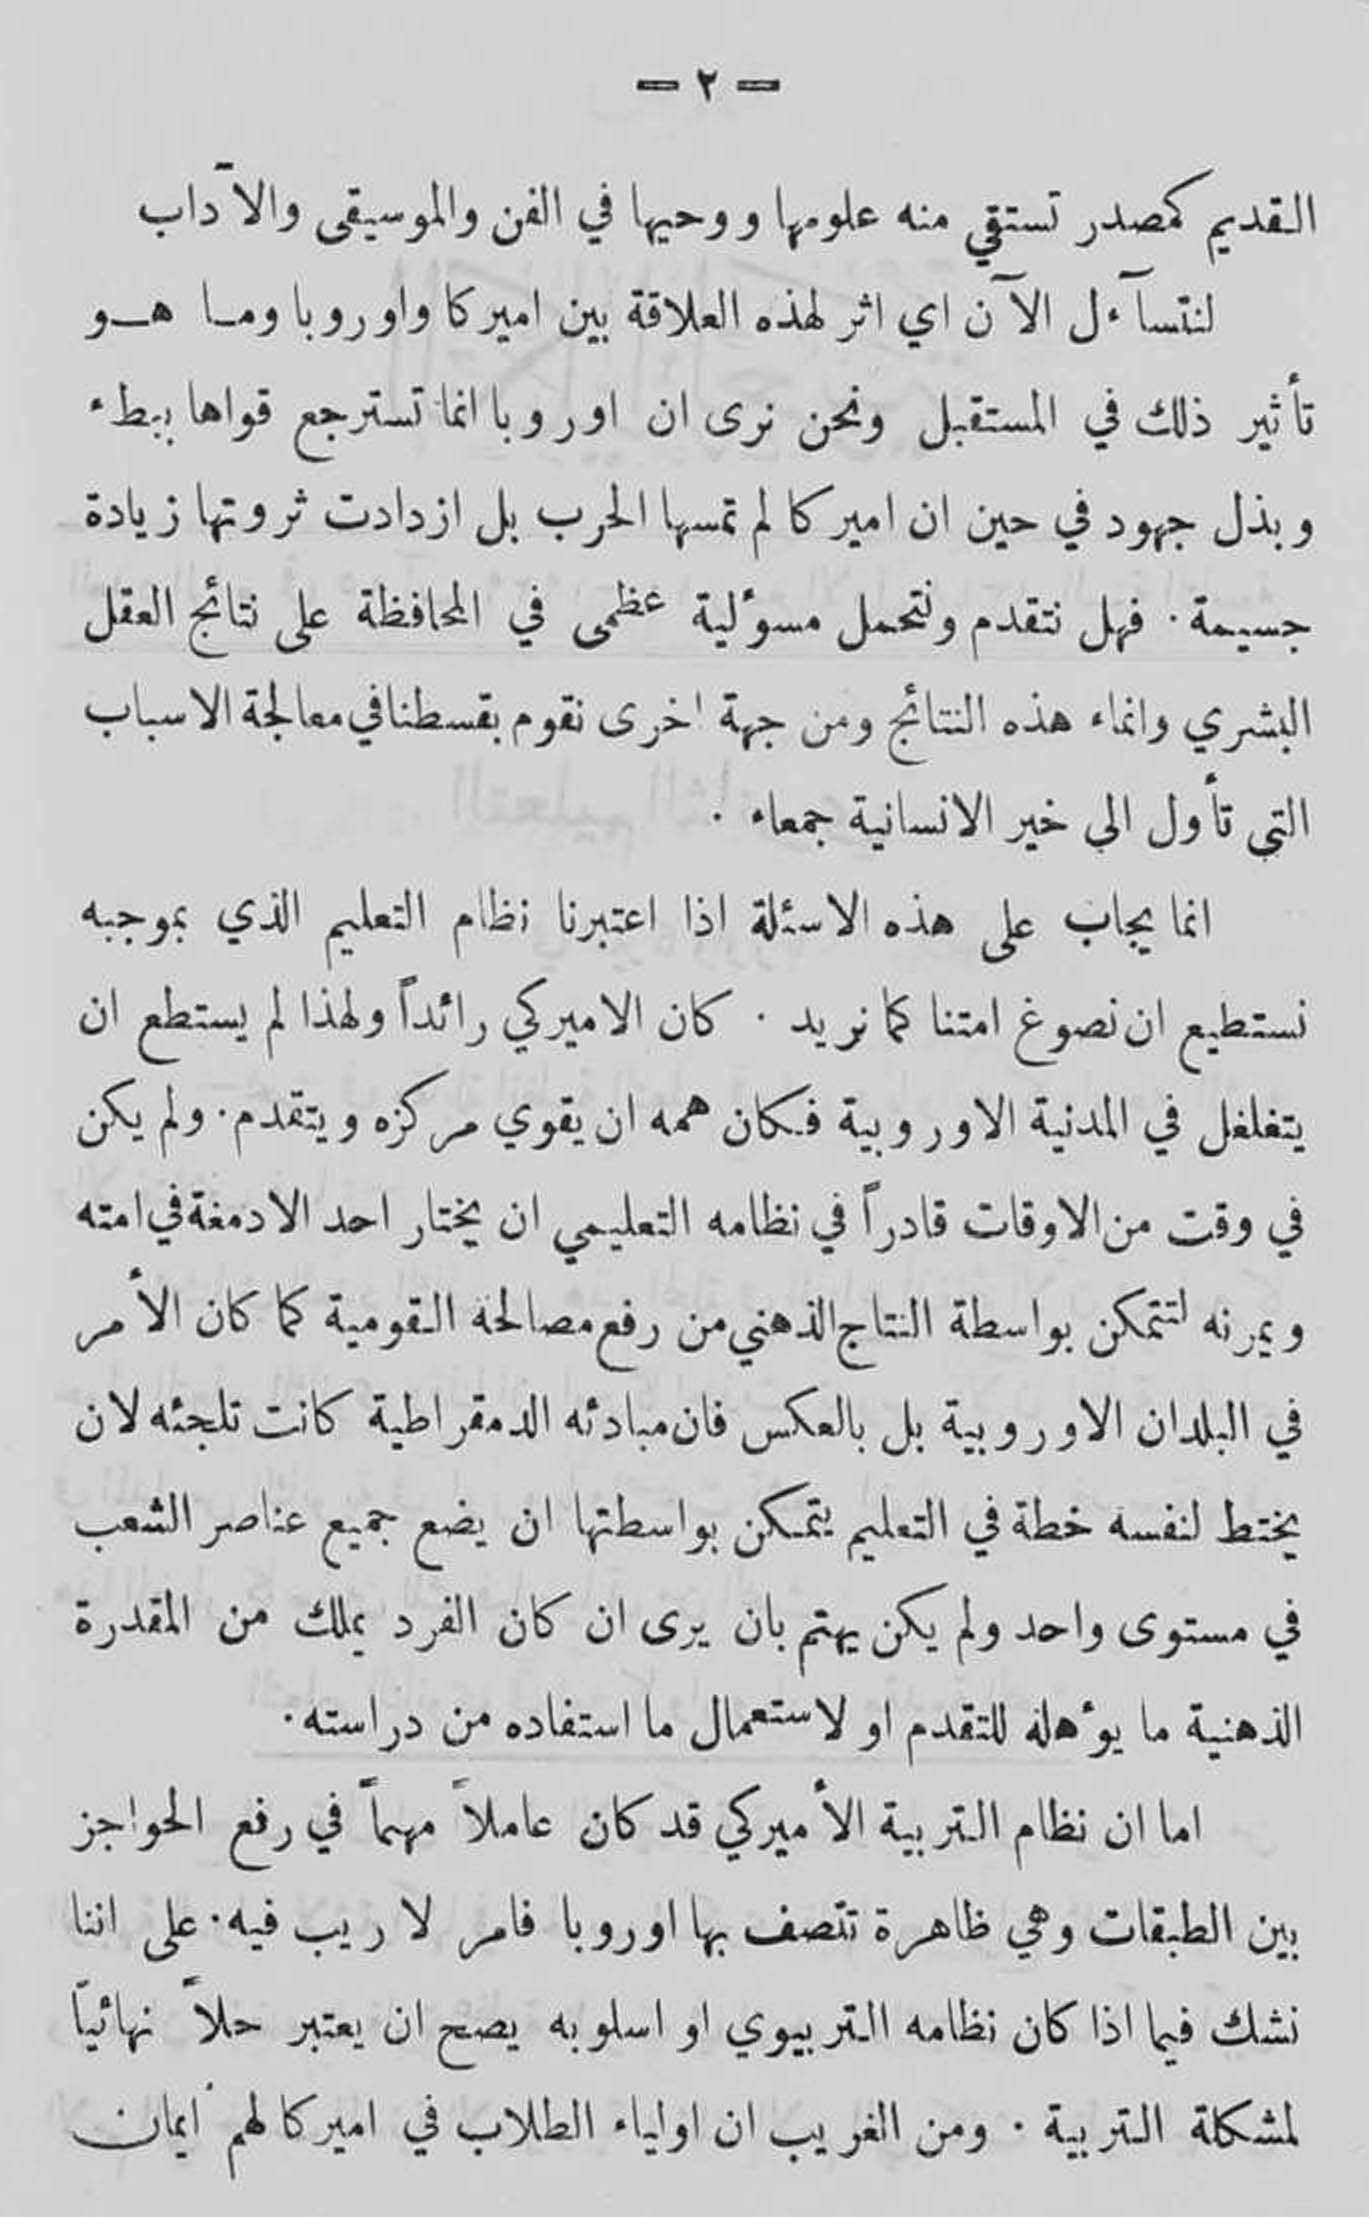 — ٢ —
القديم كمصدر تستقي منه علومها ووحيها في الفن والموسيقى والآداب
لنتسآءل الآن اي اثر لهذه العلاقة بين اميركا واوروبا وما هو
تأثير ذلك في المستقبل ونحن نرى ان اوروبا انما تسترجع قواها ببطء
وبذل جهود في حين ان اميركا لم تمسها الحرب بل ازدادت ثروتها زيادة
جسيمة . فهل نتقدم ونتحمل مسوءلية عظمى في المحافظة على نتائج العقل
البشري وانماء هذه النتائج ومن جهة اخرى نقوم بقسطنا في معالجة الاسباب
التي تأول الى خير الانسانية جمعاء .
انما يجاب على هذه الاسئلة اذا اعتبرنا نظام التعليم الذي بموجبه
نستطيع ان نصوغ امتنا كما نريد . كان الاميركي رائداً ولهذا لم يستطع ان
يتغلغل في المدنية الاوروبية فكان همه ان يقوي مركزه ويتقدم . ولم يكن
في وقت من الاوقات قادراً في نظامه التعليمي ان يختار احد الادمغة في امته
ويمرنه لتتمكن بواسطة النتاج الذهني من رفع مصالحة القومية كما كان الأمر
في البلدان الاوروبية بل بالعكس فان مبادئه الدمقراطية كانت تلجئه لان
يختط لنفسه خطة في التعليم يتمكن بواسطتها ان يضع جميع عناصر الشعب
في مستوى واحد ولم يكن يهتم بان يرى ان كان الفرد يملك من المقدرة
الذهنية ما يوءهله للتقدم او لاستعمال ما استفاده من دراسته .
اما ان نظام التربية الأميركي قد كان عاملاً مهماً في رفع الحواجز
بين الطبقات وهي ظاهرة تتصف بها اوروبا فامر لا ريب فيه . على اننا
نشك فيما اذا كان نظامه التربيوي او اسلوبه يصح ان يعتبر حلاً نهائياً
لمشكلة التربية . ومن الغريب ان اولياء الطلاب في اميركا لهم ايمان